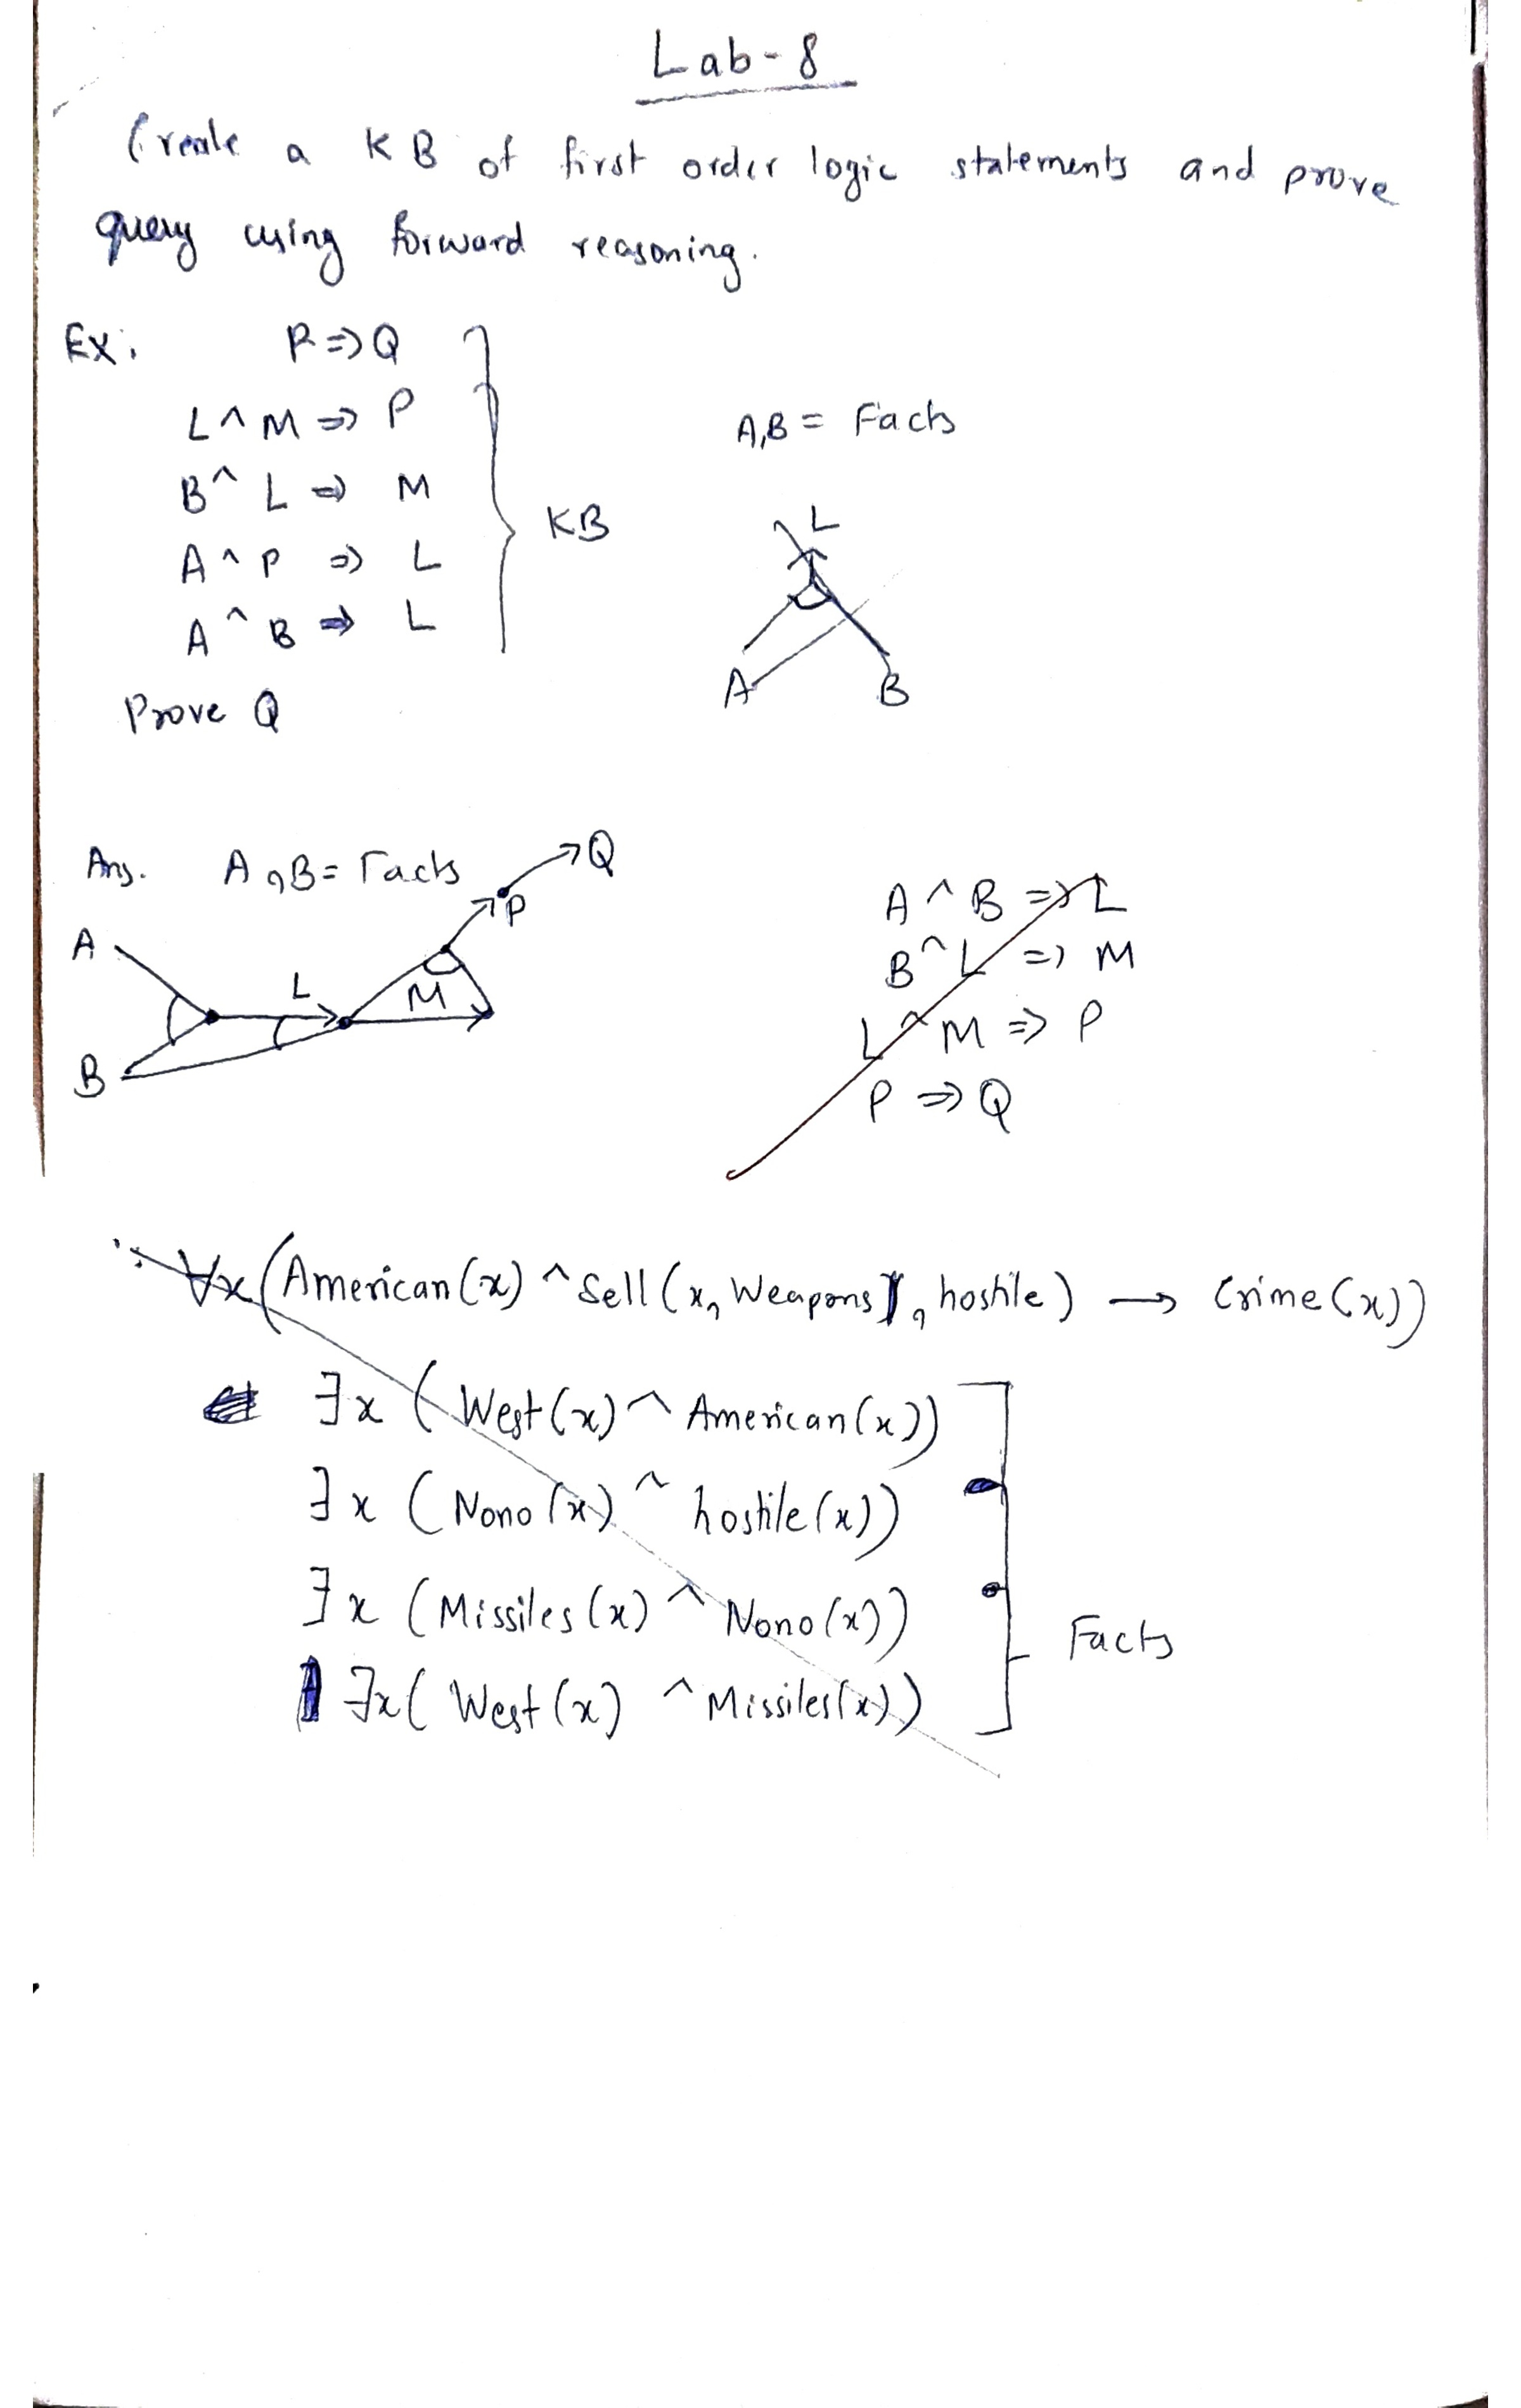 Lab-8
Create a KB of first order logic statements and prove
query using forward reasoning.
Ex: P => Q
L ^ M => P
A,B = Facts
B ^ L => M
KB
L
A ^ P => L
A ^ B => L
A B
Prove Q
Ans. A, B = Facts
Q
P
A
L
M
B
A ^ B => L
B ^ L => M
L ^ M => P
P => Q
∀x (American(x) ^ Sell (x, Weapons, hostile) → Crime(x))
∃x (West(x) ^ American(x))
∃x (Nono(x) ^ hostile(x))
∃x (Missiles(x) ^ Nono(x))
Facts
∃x (West(x) ^ Missiles(x))